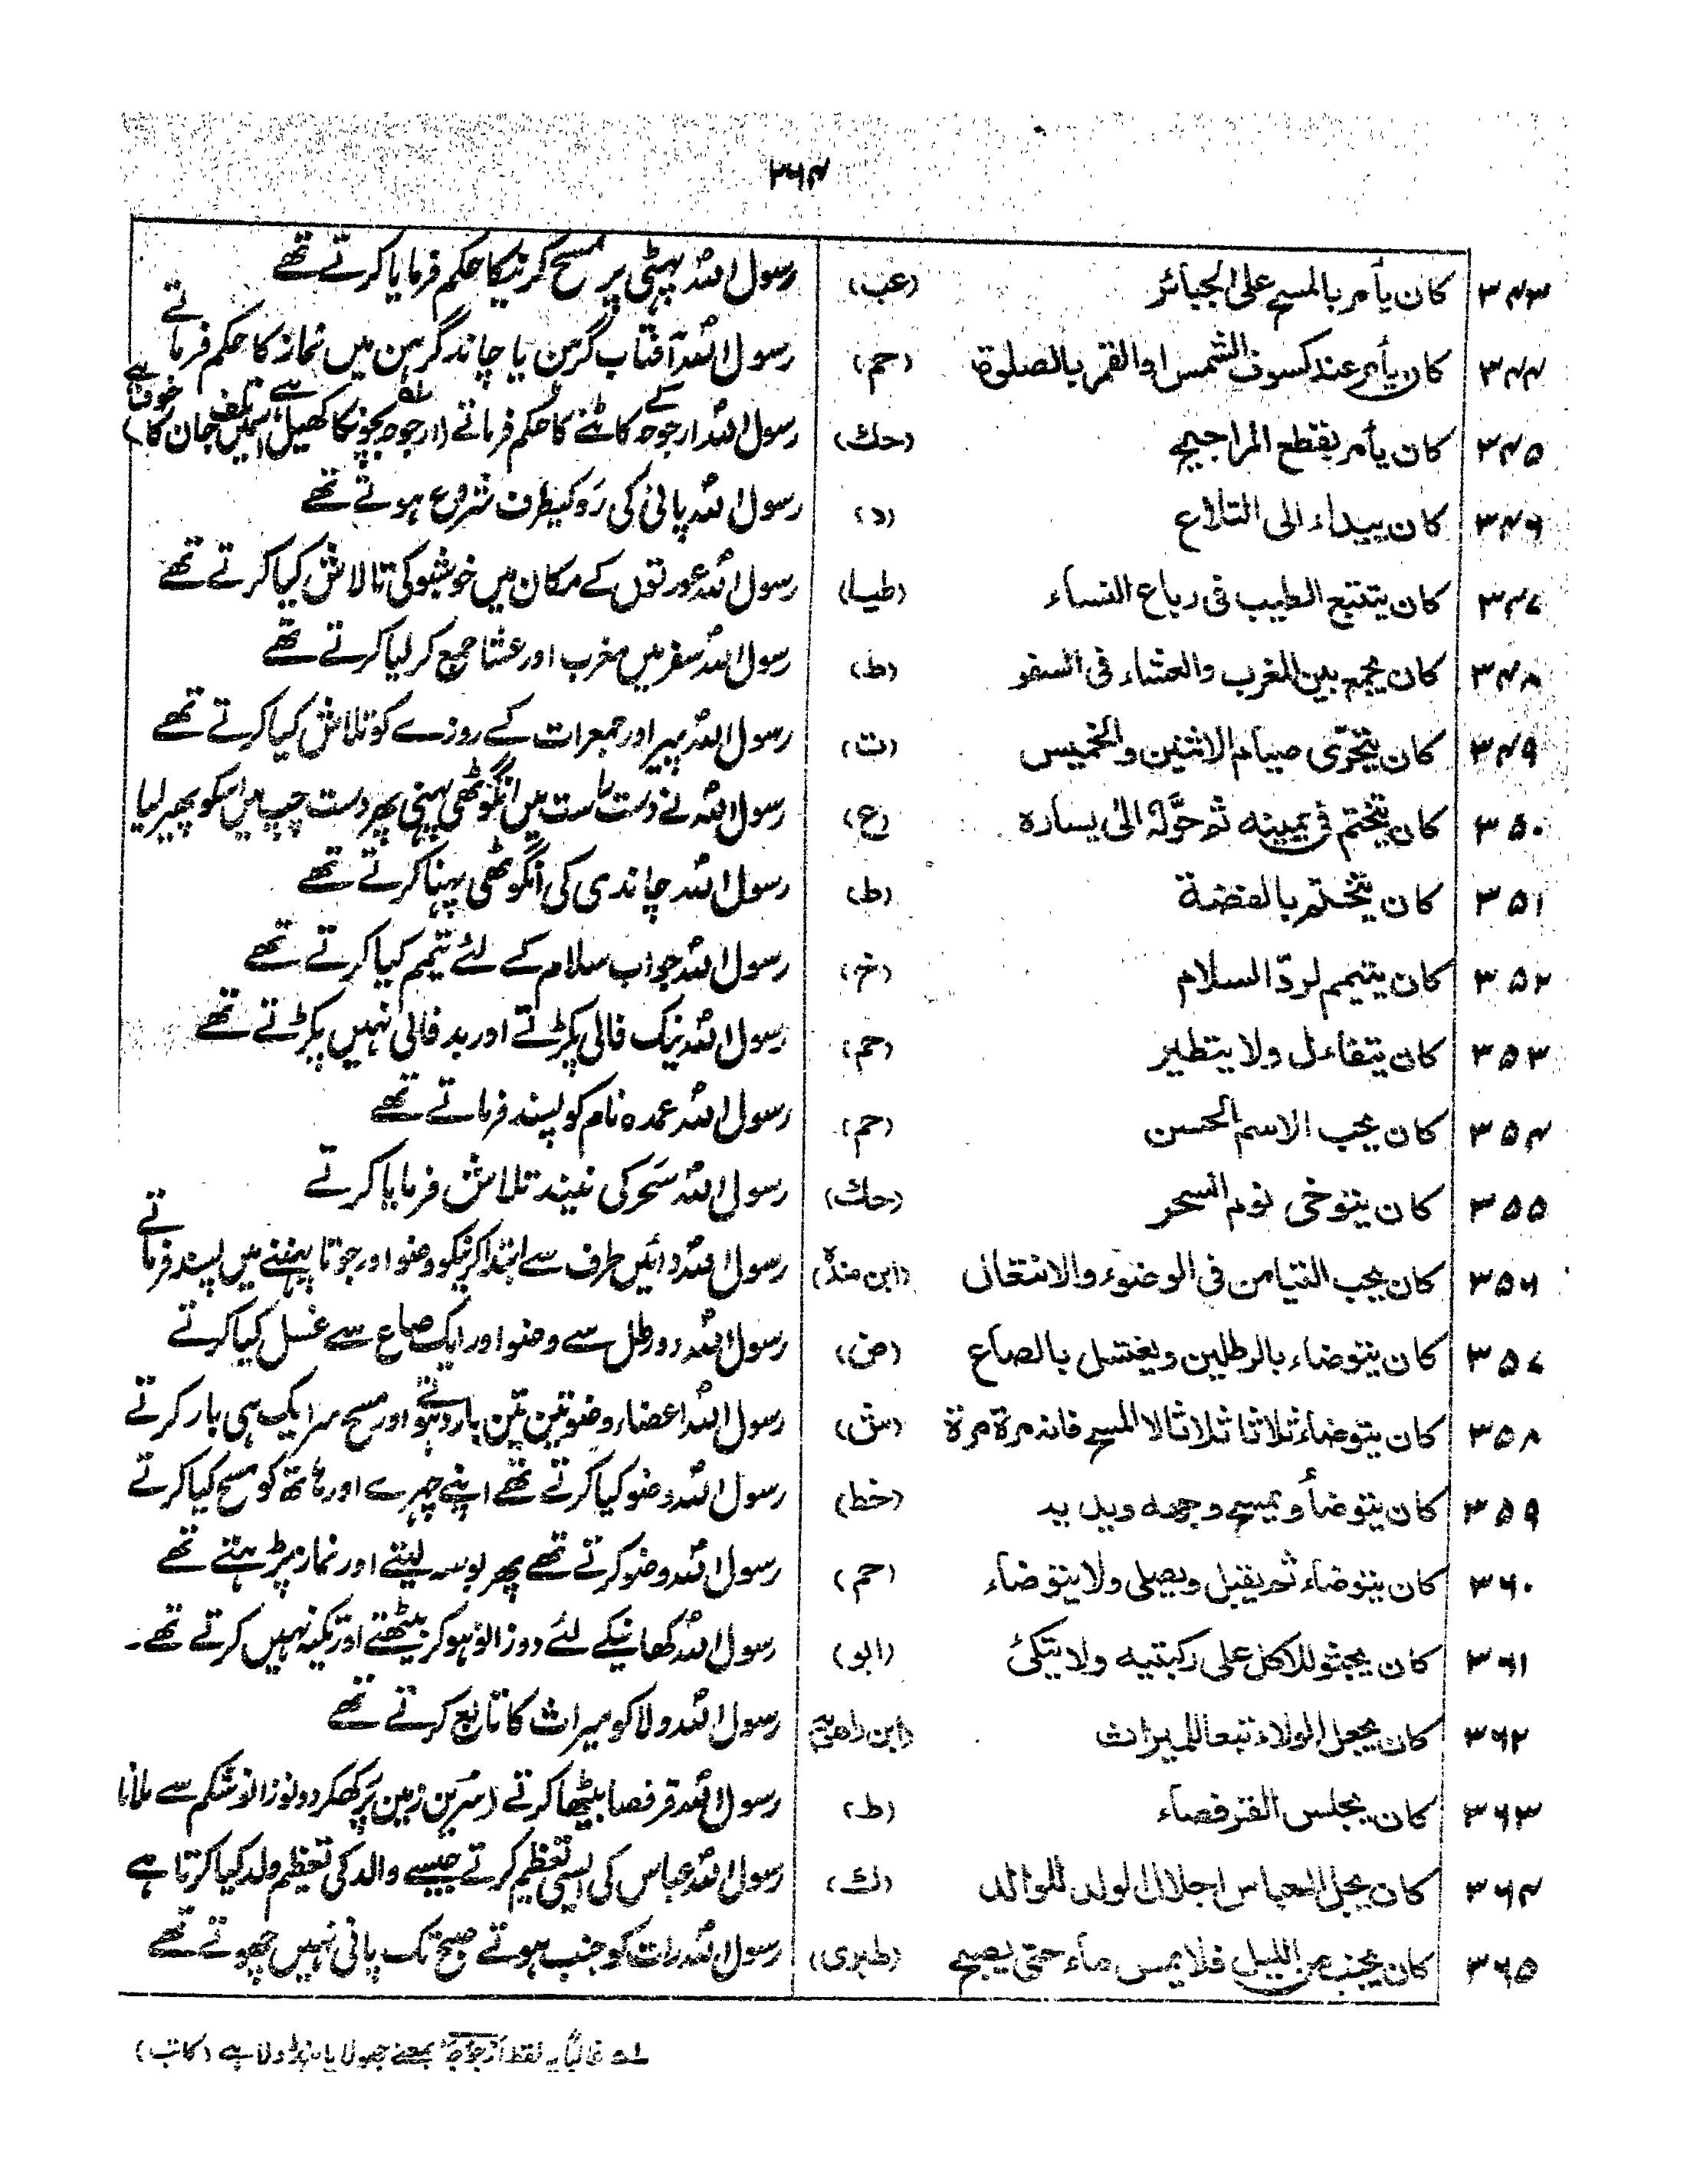 ۳۶۴
۳۴۳ کان یأمر بالمسح علی الجبائر (عب) رسول اللہؐ پہٹی پر مسح کرنیکا حکم فرمایا کرتے تھے
۳۴۴ کان یأمر عند کسوف الشمس او القمر بالصلوة (حم) رسول اللہؐ آفتاب گرہن یا چاند گرہن میں نماز کا حکم فرماتے
۳۴۵ کان یأمر بقطع المراجیح (حك) رسول اللہؐ ارجوحہ کے کاٹنے کا حکم فرماتے (ارجوحہ بچونکا کھیل ہے، اسمیں جان کا خوف ہے)
۳۴۶ کان یبداء الی التلاع (د) رسول اللہؐ پانی کی رَو کیطرف شروع ہوتے تھے
۳۴۷ کان یتتبع الطیب فی رباع النساء (طیا) رسول اللہؐ عورتوں کے مکان میں خوشبو کی تالاش کیا کرتے تھے
۳۴۸ کان یجمع بین المغرب والعشاء فی السفر (ط) رسول اللہؐ سفر میں مغرب اور عشا جمع کر لیا کرتے تھے
۳۴۹ کان یتحرّی صیام الاثنین والخمیس (ت) رسول اللہؐ پیر اور جمعرات کے روزے کو تلاش کیا کرتے تھے
۳۵۰ کان یتختم فی یمینه ثم حوَّله الی یساره (ع) رسول اللہؐ نے دست راست میں انگوٹھی پہنی پھر دست چپ میں اسکو پھیر لیا
۳۵۱ کان یتختم بالفضة (ط) رسول اللہؐ چاندی کی انگوٹھی پہنا کرتے تھے
۳۵۲ کان یتیمم لردّ السلام (خ) رسول اللہؐ جواب سلام کے لئے تیمم کیا کرتے تھے
۳۵۳ کان یتفاءل ولا یتطیر (حم) رسول اللہؐ نیک فالی پکڑتے اور بد فالی نہیں پکڑتے تھے
۳۵۴ کان یحب الاسم الحسن (حم) رسول اللہؐ عمدہ نام کو پسند فرماتے تھے
۳۵۵ کان یتوخی نوم السحر (حك) رسول اللہؐ سَحر کی نیند تلاش فرمایا کرتے
۳۵۶ کان یحب التیامن فی الوضوء والانتعال (ابن مندہ) رسول اللہؐ دائیں طرف سے ابتدا کرنیکو وضو اور جوتا پہننے میں پسند فرماتے
۳۵۷ کان یتوضاء بالرطلین ویغتسل بالصاع (ض) رسول اللہؐ دو رطل سے وضو اور ایک صاع سے غسل کیا کرتے
۳۵۸ کان یتوضاء ثلاثا ثلاثا الا المسح فانه مرة مرة (ش) رسول اللہؐ اعضاء وضو تین تین بار دہوتے اور مسح سر ایک ہی بار کرتے
۳۵۹ کان یتوضأ و یمسح وجهه ویدیه (خط) رسول اللہؐ وضو کیا کرتے تھے اپنے چہرے اور ہاتھ کو مسح کیا کرتے
۳۶۰ کان یتوضاء ثم یقبل ویصلی ولا یتوضاء (حم) رسول اللہؐ وضو کرتے تھے پھر بوسہ لیتے اور نماز پڑہتے تھے
۳۶۱ کان یجثو للاکل علی رکبتیه ولا یتکئ (ابو) رسول اللہؐ کھانیکے لئے دوزانو ہوکر بیٹھتے اور تکیہ نہیں کرتے تھے۔
۳۶۲ کان یجعل الولاء تبعا للمیراث (ابن راهویہ) رسول اللہؐ ولا کو میراث کا تابع کرتے تھے
۳۶۳ کان یجلس القرفصاء (ط) رسول اللہؐ قرفصا بیٹھا کرتے (سرین زمین پر رکھکر دونو زانو شکم سے ملانا
۳۶۴ کان یجل العباس اجلال الولد للوالد (ك) رسول اللہؐ عباس کی ایسی تعظیم کرتے جیسے والد کی تعظیم ولد کیا کرتا ہے
۳۶۵ کان یجنب من اللیل فلا یمس ماء حتی یصبح (طبری) رسول اللہؐ رات کو جنب ہوتے صبح تک پانی نہیں چھوتے تھے
لہ غالباً یہ لفظ اُرْجُوْحَہ بمعنے جھولا یا ہنڈولا ہے (کاتب)